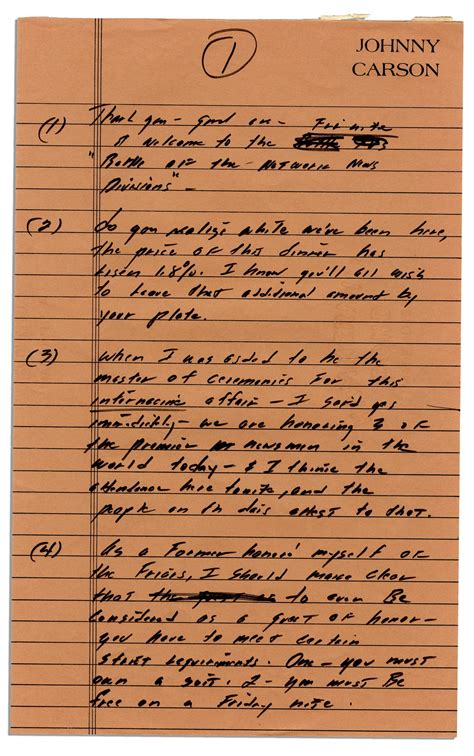 1
JOHNNY
CARSON
(1) Thank you - Good eve - Fri nite
& welcome to the
"Battle of the Network News
Divisions" -
(2) Do you realize while we've been here,
the price of this dinner has
risen 1.8%. I know you'll all wish
to leave that additional amount by
your plate.
(3) When I was asked to be the
master of ceremonies for this
internacine affair - I said yes
immediatly - we are honoring 3 of
the premier newsmen in the
world today - & I think the
attendence here tonite, and the
people on th dais attest to that.
(4) As a former honoré myself of
the Friars, I should make clear
that to even be
considered as a guest of honor -
you have to meet certain
strict requirements. One - you must
own a suit. 2 - you must be
free on a Friday nite.